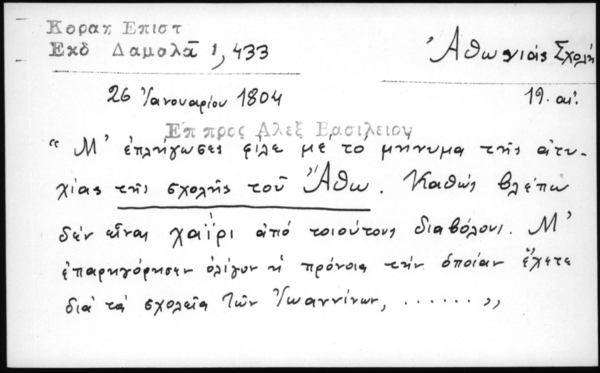 Κοραη Επιστ
Εκδ Δαμολᾶ 1,433
Ἀθωνιάς Σχολή
26 Ἰανουαρίου 1804
19. αἰ.
Επ προς Αλεξ Βασιλειου
"Μ' ἐπλήγωσες φίλε μὲ τὸ μήνυμα τῆς ἀτυ-
χίας τῆς σχολῆς τοῦ Ἄθω. Καθὼς βλέπω
δὲν εἶναι χαΐρι ἀπὸ τοιούτους διαβόλους. Μ'
ἐπαρηγόρησεν ὀλίγον ἡ πρόνοια τὴν ὁποίαν ἔχετε
διὰ τὰ σχολεῖα τῶν Ἰωαννίνων, ......"